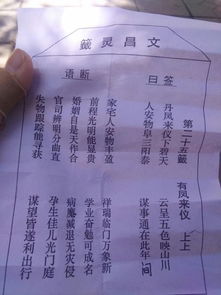 文昌灵籤
曰签
语断
第二十五籤
有凤来仪 上上
丹凤来仪下碧天
云呈五色映山川
人安物阜三阳泰
谋事通在此年间
家宅人安物丰盈
祥瑞临门万象新
前程光明能显贵
学业奋勉可成名
婚姻自是天作合
病魔减退无灾侵
官司辨明分曲直
孕生佳儿光门庭
失物跟踪能寻获
谋望皆遂利出行